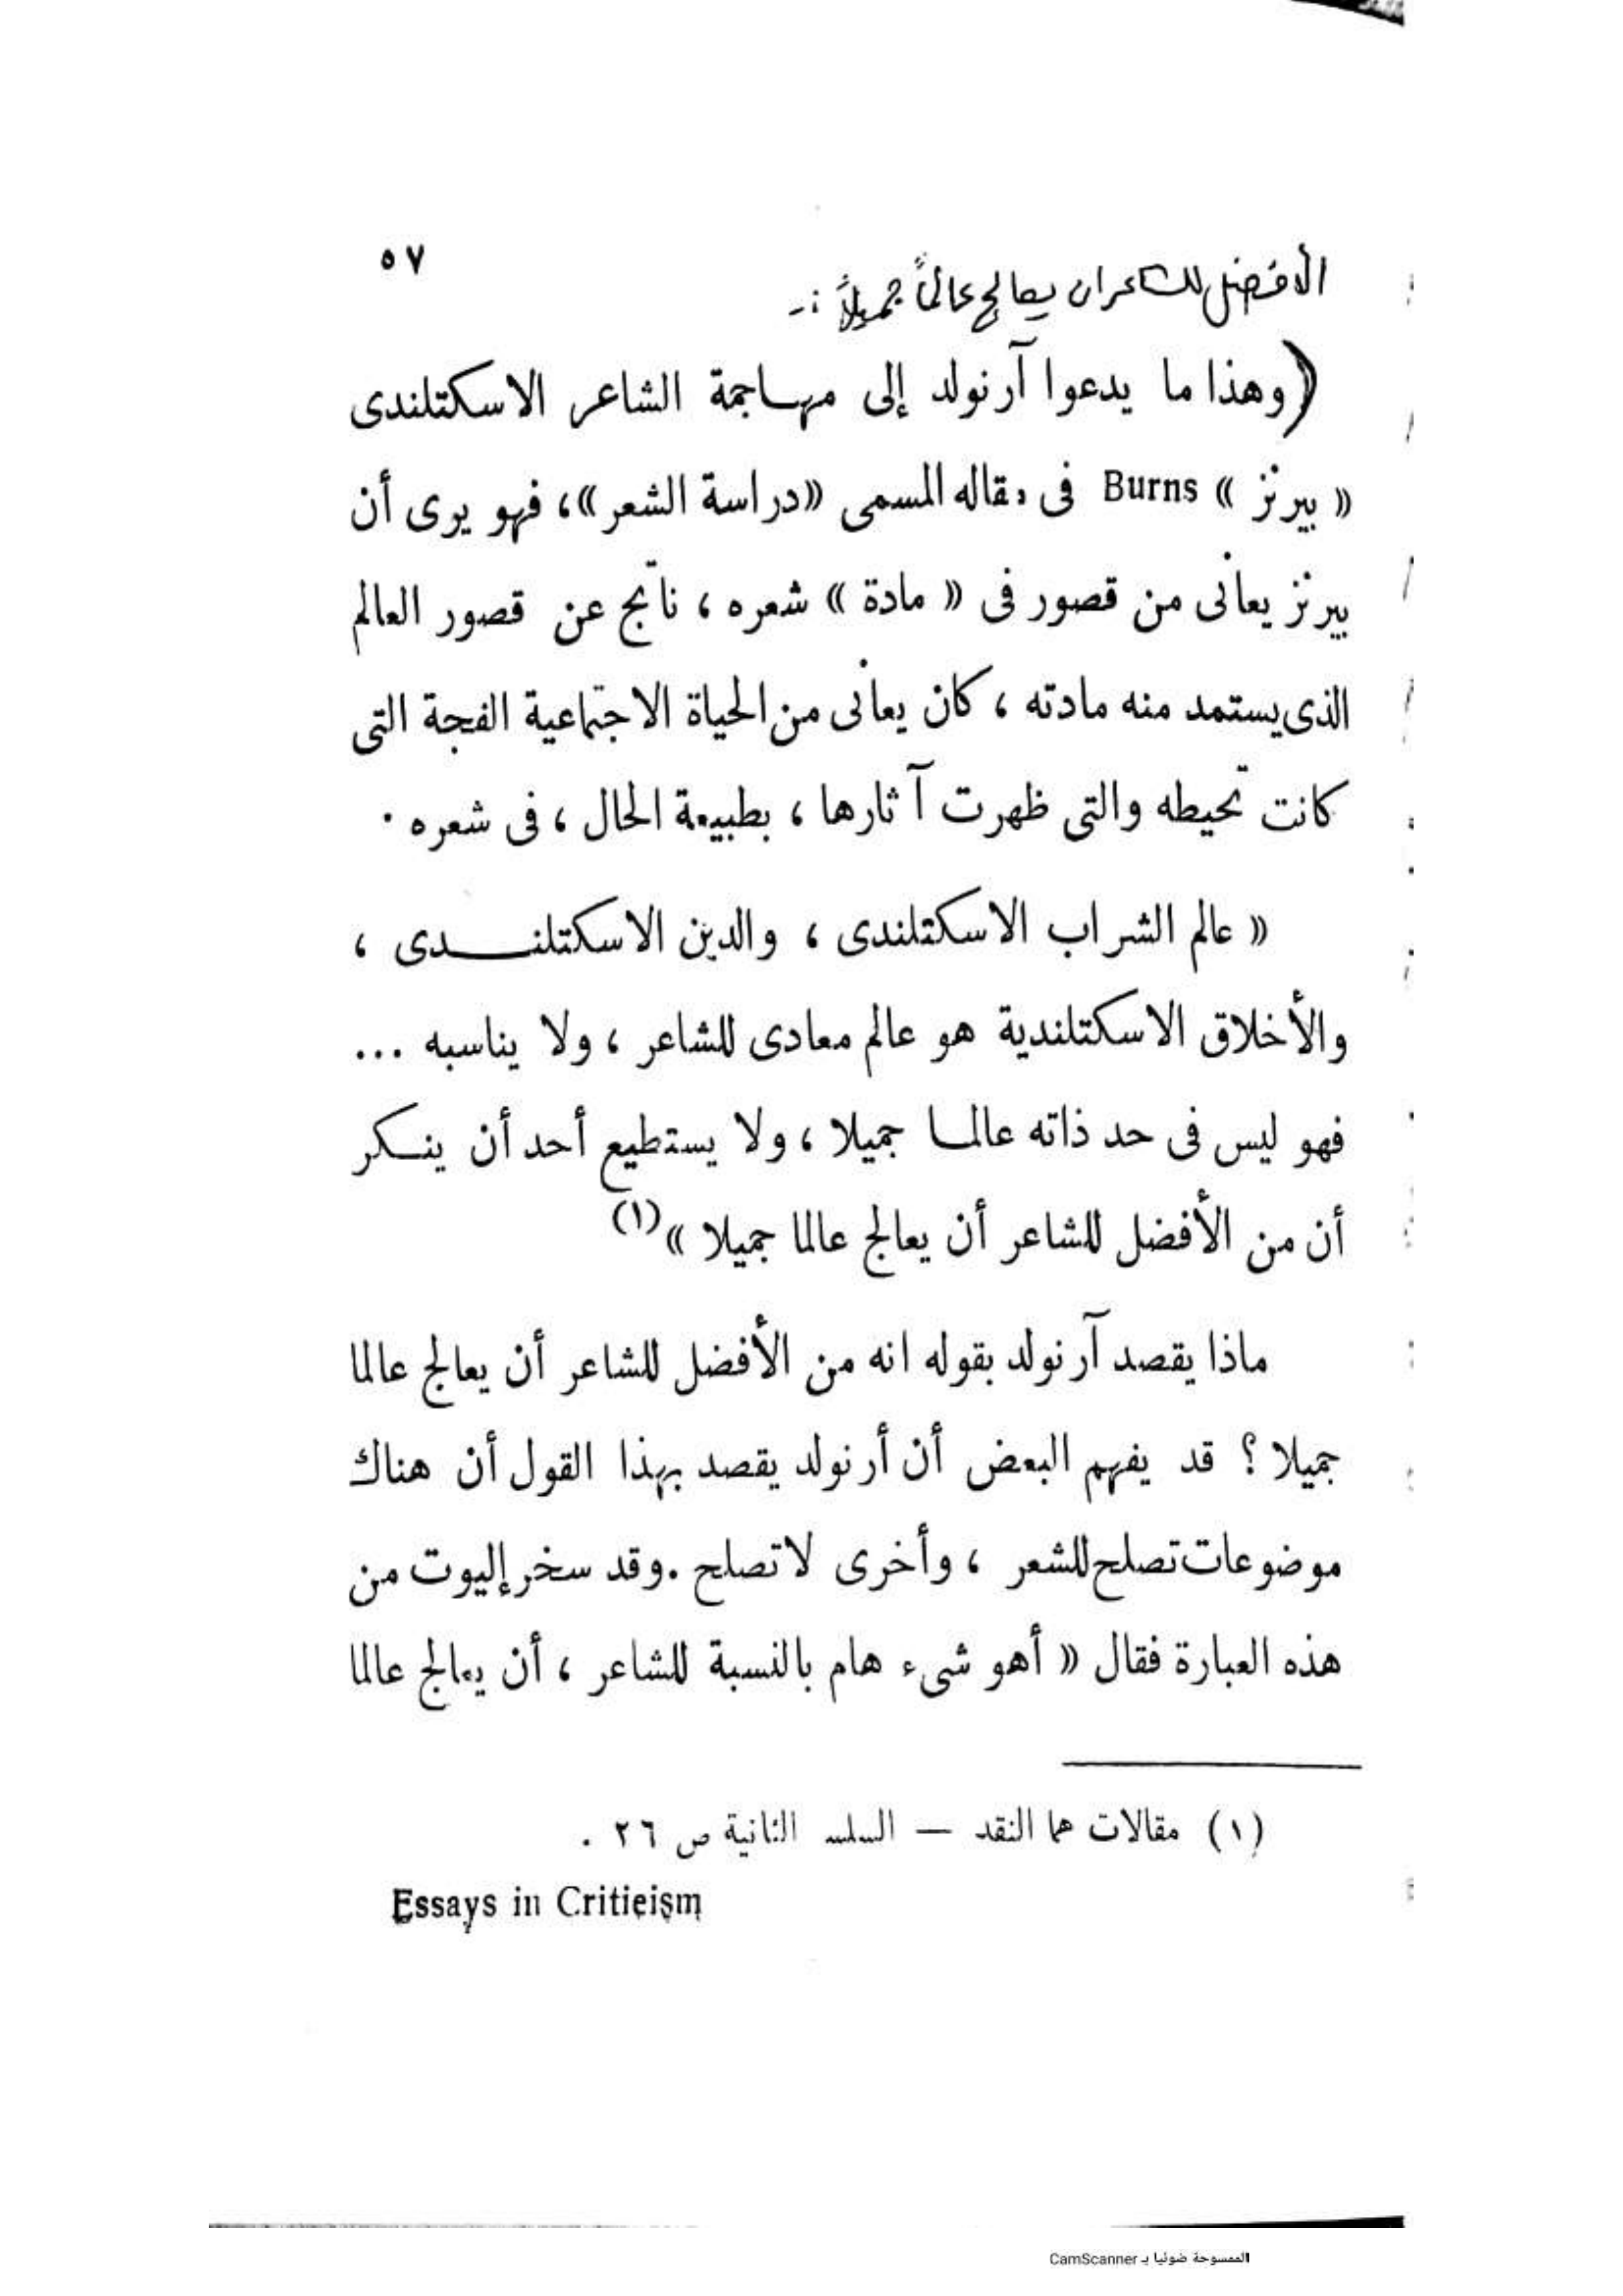 ٥٧
الأفضل للشاعر ان يعالج عالماً جميلاً :-
(وهذا ما يدعوا آرنولد إلى مهاجمة الشاعر الاسكتلندى
« بيرنز » Burns فى مقاله المسمى «دراسة الشعر»، فهو يرى أن
بيرنز يعانى من قصور فى « مادة » شعره ، ناتج عن قصور العالم
الذى يستمد منه مادته ، كان يعانى من الحياة الاجتماعية الفجة التى
كانت تحيطه والتى ظهرت آثارها ، بطبيعة الحال ، فى شعره .
« عالم الشراب الاسكتلندى ، والدين الاسكتلنـــدى ،
والأخلاق الاسكتلندية هو عالم معادى للشاعر ، ولا يناسبه ...
فهو ليس فى حد ذاته عالمـا جميلا ، ولا يستطيع أحد أن ينـكر
أن من الأفضل للشاعر أن يعالج عالما جميلا »(١)
ماذا يقصد آرنولد بقوله انه من الأفضل للشاعر أن يعالج عالما
جميلا ؟ قد يفهم البعض أن أرنولد يقصد بهذا القول أن هناك
موضوعات تصلح للشعر ، وأخرى لا تصلح . وقد سخر إليوت من
هذه العبارة فقال « أهو شىء هام بالنسبة للشاعر ، أن يعالج عالما
(١) مقالات هما النقد — السلسه الثانية ص ٢٦ .
Essays in Critieism
الممسوحة ضوئيا بـ CamScanner